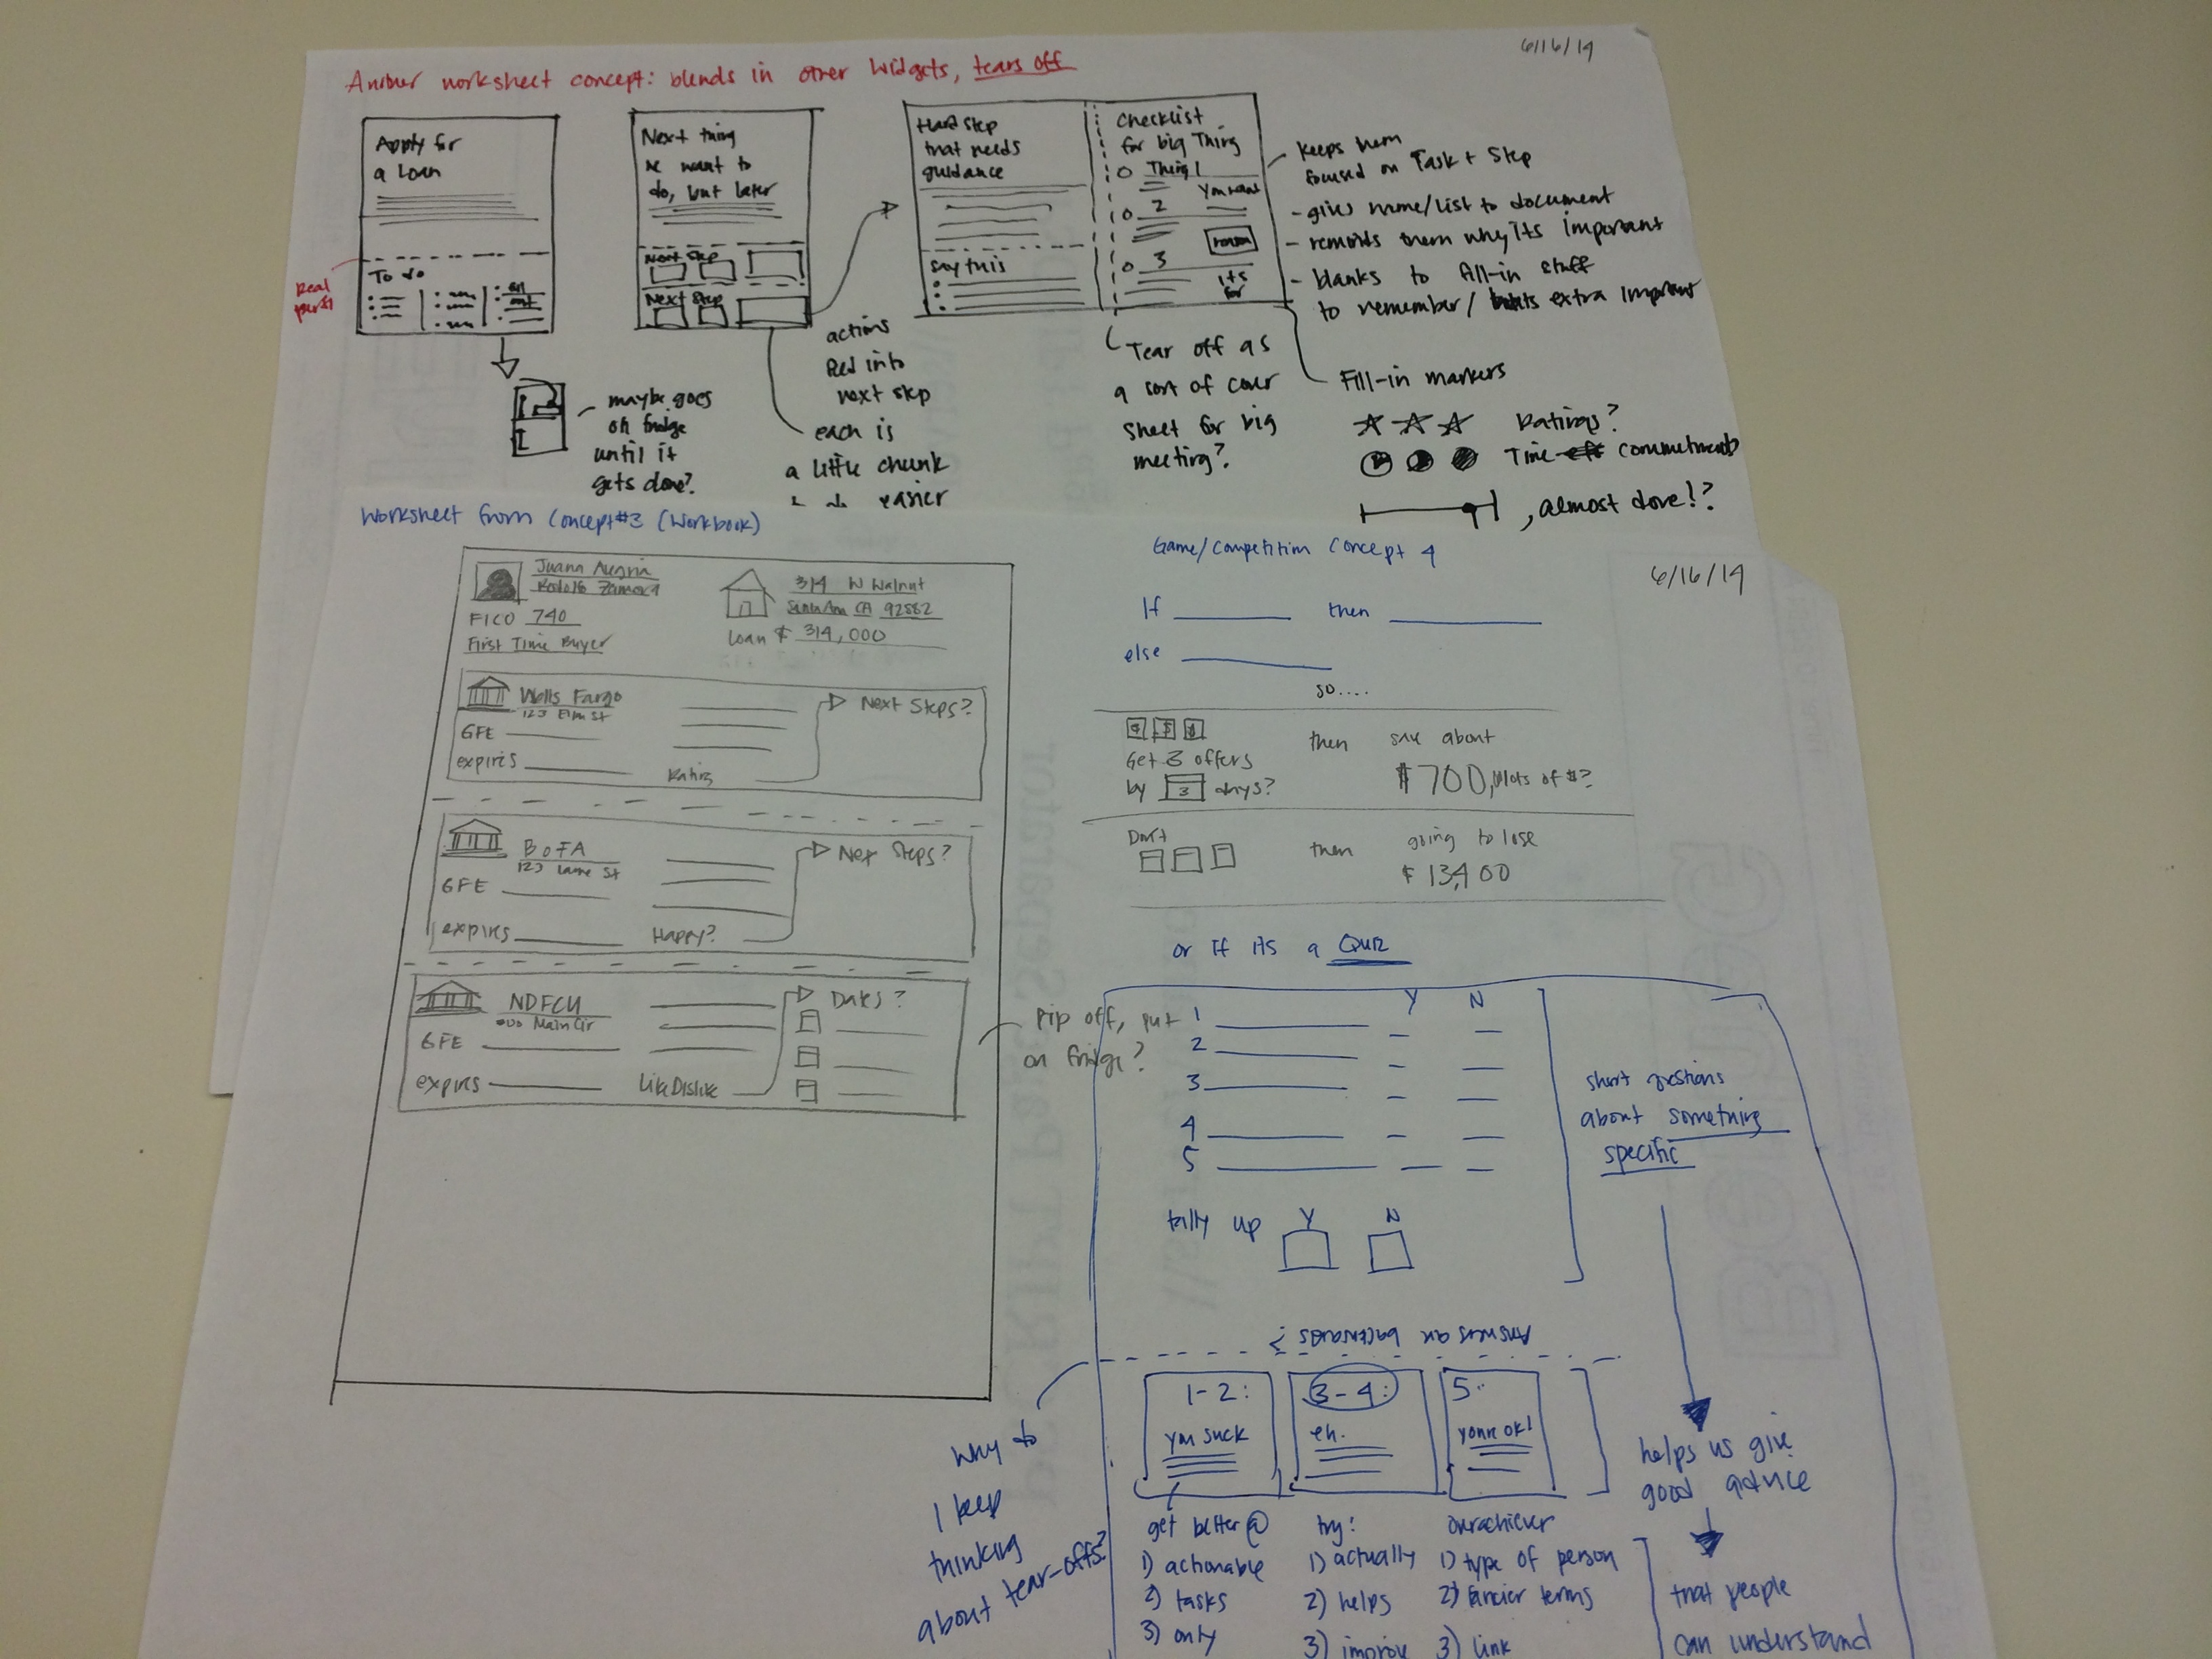 6/16/14
Another worksheet concept: blends in other widgets, tears off
Apply for
a loan
To do
Real
perf?
maybe goes
on fridge
until it
gets done?
Next thing
we want to
do, but later
Next Step
Next Step
actions
feed into
next step
each is
a little chunk
easier
Hard step
that needs
guidance
say this
Checklist
for big Thing
Thing 1
you want
2
3
its
for
keeps them
focused on Task + Step
- gives name/list to document
- reminds them why its important
- blanks to fill-in stuff
to remember/ extra important
Tear off as
a sort of cover
sheet for big
meeting?
Fill-in markers
Ratings?
Time commitments
, almost done!?
Worksheet from Concept #3 (Workbook)
Juana Alegria
Rodolfo Zamora
FICO 740
First Time Buyer
314 W Walnut
Santa Ana CA 92882
Loan $ 314,000
Wells Fargo
123 Elm St
GFE
expires
Rating
Next Steps?
BofA
123 Lame St
GFE
expires
Happy?
Nex Steps?
NDFCU
Main Cir
GFE
expires
Like Dislike
Dates?
Rip off, put
on fridge?
6/16/14
Game/Competition Concept 4
If then
else
so....
Get 3 offers
by 3 days?
then
save about
$700, lots of $?
Don't
then
going to lose
$ 13,400
or if its a Quiz
Y N
1
2
3
4
5
tally up Y N
short questions
about something
specific
Answers are backwards?
1-2:
you suck
3-4:
eh.
5:
youre ok!
Why do
I keep
thinking
about tear-offs?
get better @
1) actionable
2) tasks
3) only
try:
1) actually
2) helps
3) improve
overachiever
1) type of person
2) fancier terms
3) link
helps us give
good advice
that people
can understand